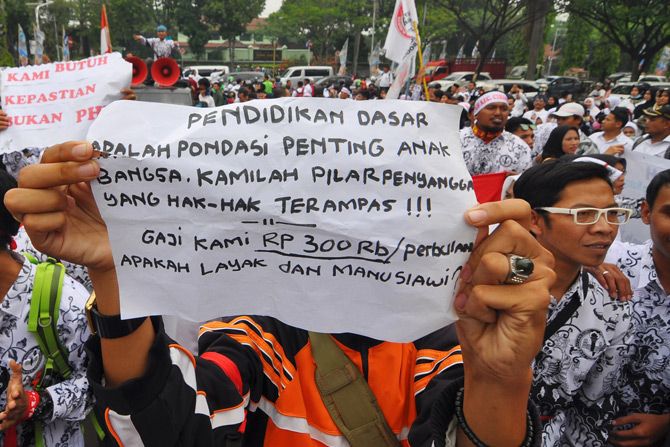 KAMI BUTUH
KEPASTIAN
BUKAN PH
PENDIDIKAN DASAR
APALAH PONDASI PENTING ANAK
BANGSA. KAMILAH PILAR PENYANGGA
YANG HAK-HAK TERAMPAS !!!
GAJI KAMI RP 300 Rb/perbulan
APAKAH LAYAK DAN MANUSIAWI